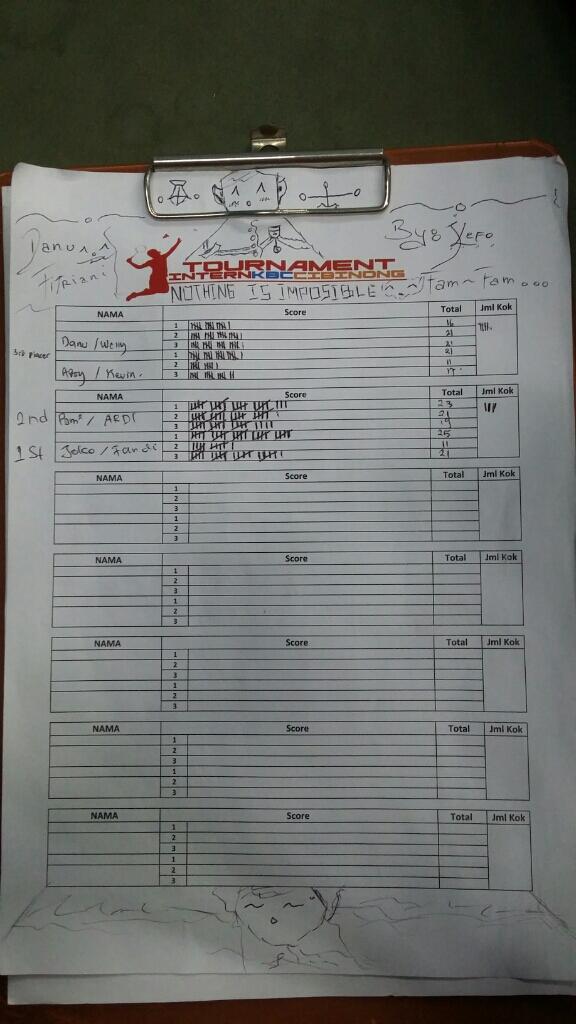 Danu
Fitriani
By8
TOURNAMENT
INTERNKBCCIBINONG
NOTHING IS IMPOSIBLE
Fam ~ Fam...
NAMA Score Total Jml Kok
1 16
Danu / Weny 2 21
3rd 3 21
1 21
2 11
/ Kevin. 3 17
NAMA Score Total Jml Kok
1 23
2nd / ARDI 2 21
3 19
1 25
1st Joko / Fandi 2 11
3 21
NAMA Score Total Jml Kok
1
2
3
1
2
3
NAMA Score Total Jml Kok
1
2
3
1
2
3
NAMA Score Total Jml Kok
1
2
3
1
2
3
NAMA Score Total Jml Kok
1
2
3
1
2
3
NAMA Score Total Jml Kok
1
2
3
1
2
3